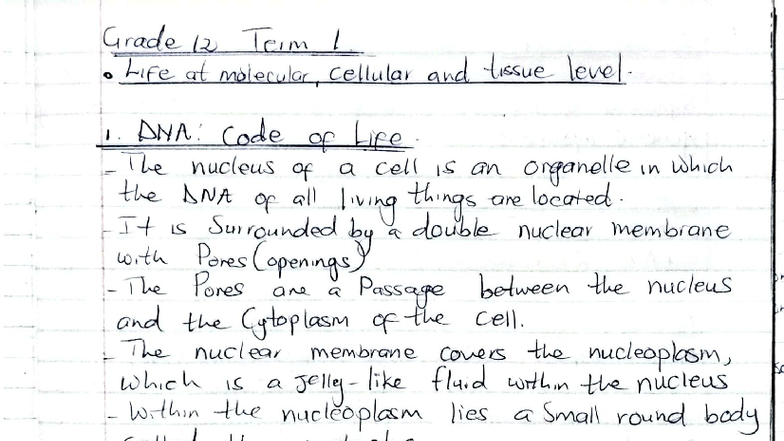 Grade 12 Term 1.
• Life at molecular, cellular and tissue level.
1. DNA: Code of Life.
- The nucleus of a cell is an organelle in which
the DNA of all living things are located.
- It is surrounded by a double nuclear membrane
with Pores (openings)
- The Pores are a Passage between the nucleus
and the Cytoplasm of the cell.
- The nuclear membrane covers the nucleoplasm,
which is a Jelly-like fluid within the nucleus
- Within the nucleoplasm lies a Small round body